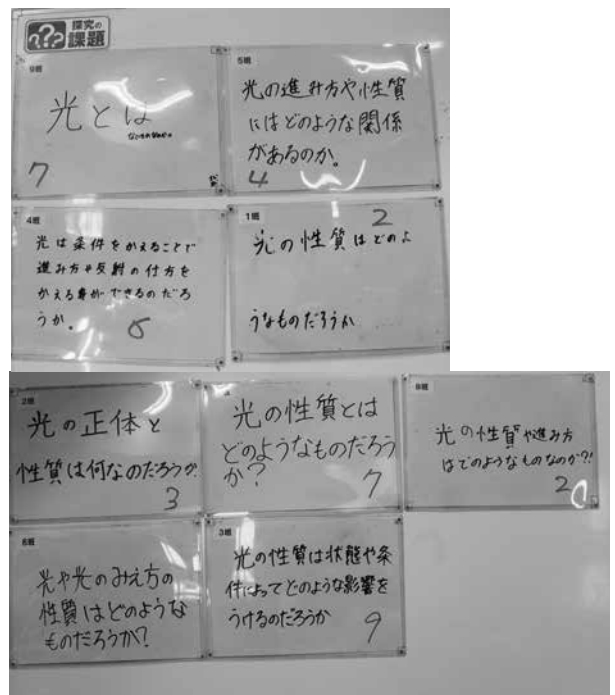 ???
探究の
課題
9班
光とは
なにものなのか。
7
5班
光の進み方や性質
にはどのような関係
があるのか。
4
4班
光は条件をかえることで
進み方や反射の仕方を
かえる事ができるのだろ
うか。
1班
2
光の性質はどのよ
うなものだろうか
2班
光の正体と
性質は何なのだろうか?
3
光の性質とは
どのようなものだろう
か?
7
8班
光の性質や進み方
はどのようなものなのか?!
2
6班
光や光のみえ方の
性質はどのような
ものだろうか?
3班
光の性質は状態や条
件によってどのような影響を
うけるのだろうか
9